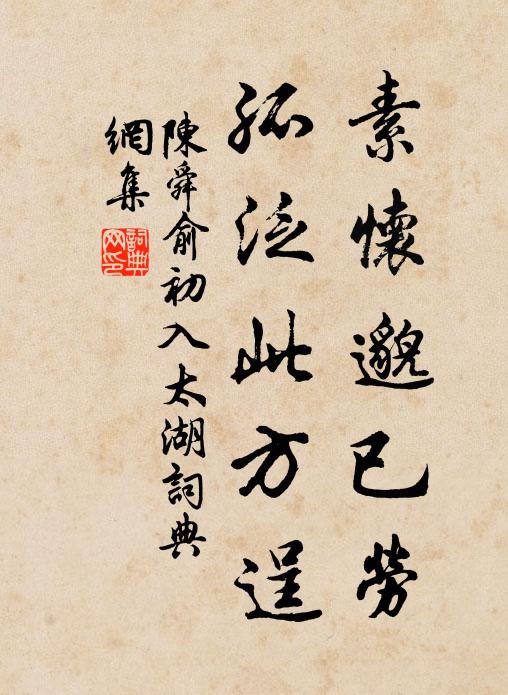 素懷邈已勞
孤泛此方逞
陳舜俞初入太湖詞典
網集
詞典
网印